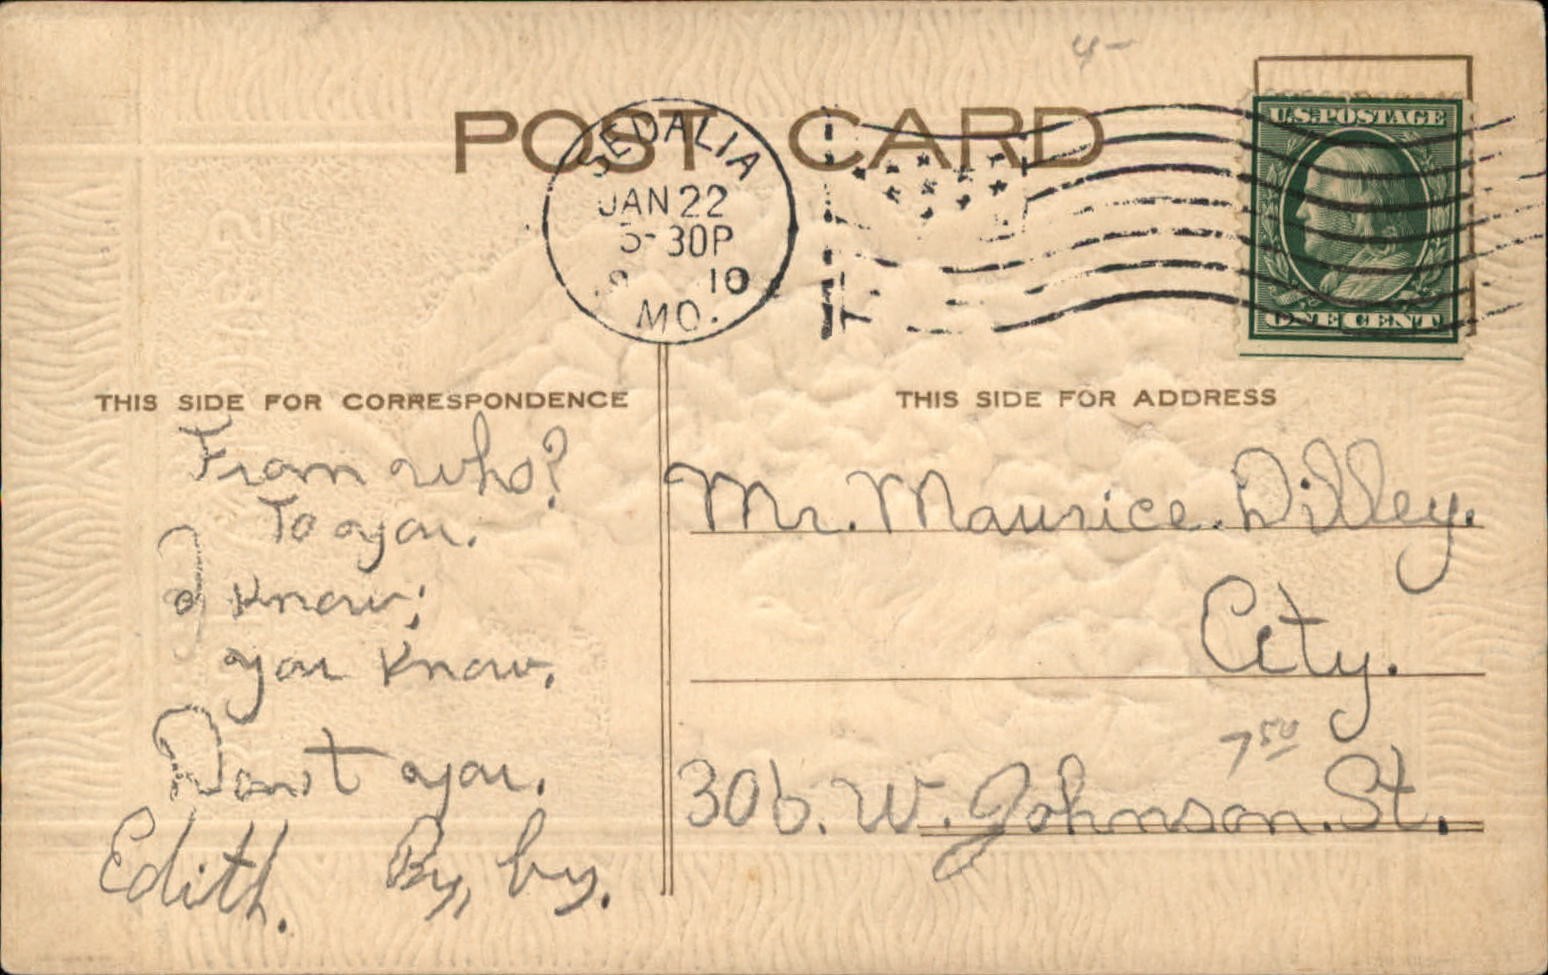 4-
POST CARD
U.S. POSTAGE
ONE CENT
SEDALIA
JAN 22
5-30P
10
MO.
THIS SIDE FOR CORRESPONDENCE
From who?
To you.
I know;
you know.
Don't you.
Edith. By, by.
THIS SIDE FOR ADDRESS
Mr. Maurice. Dilley.
City.
7 50
306. W. Johnson. St.